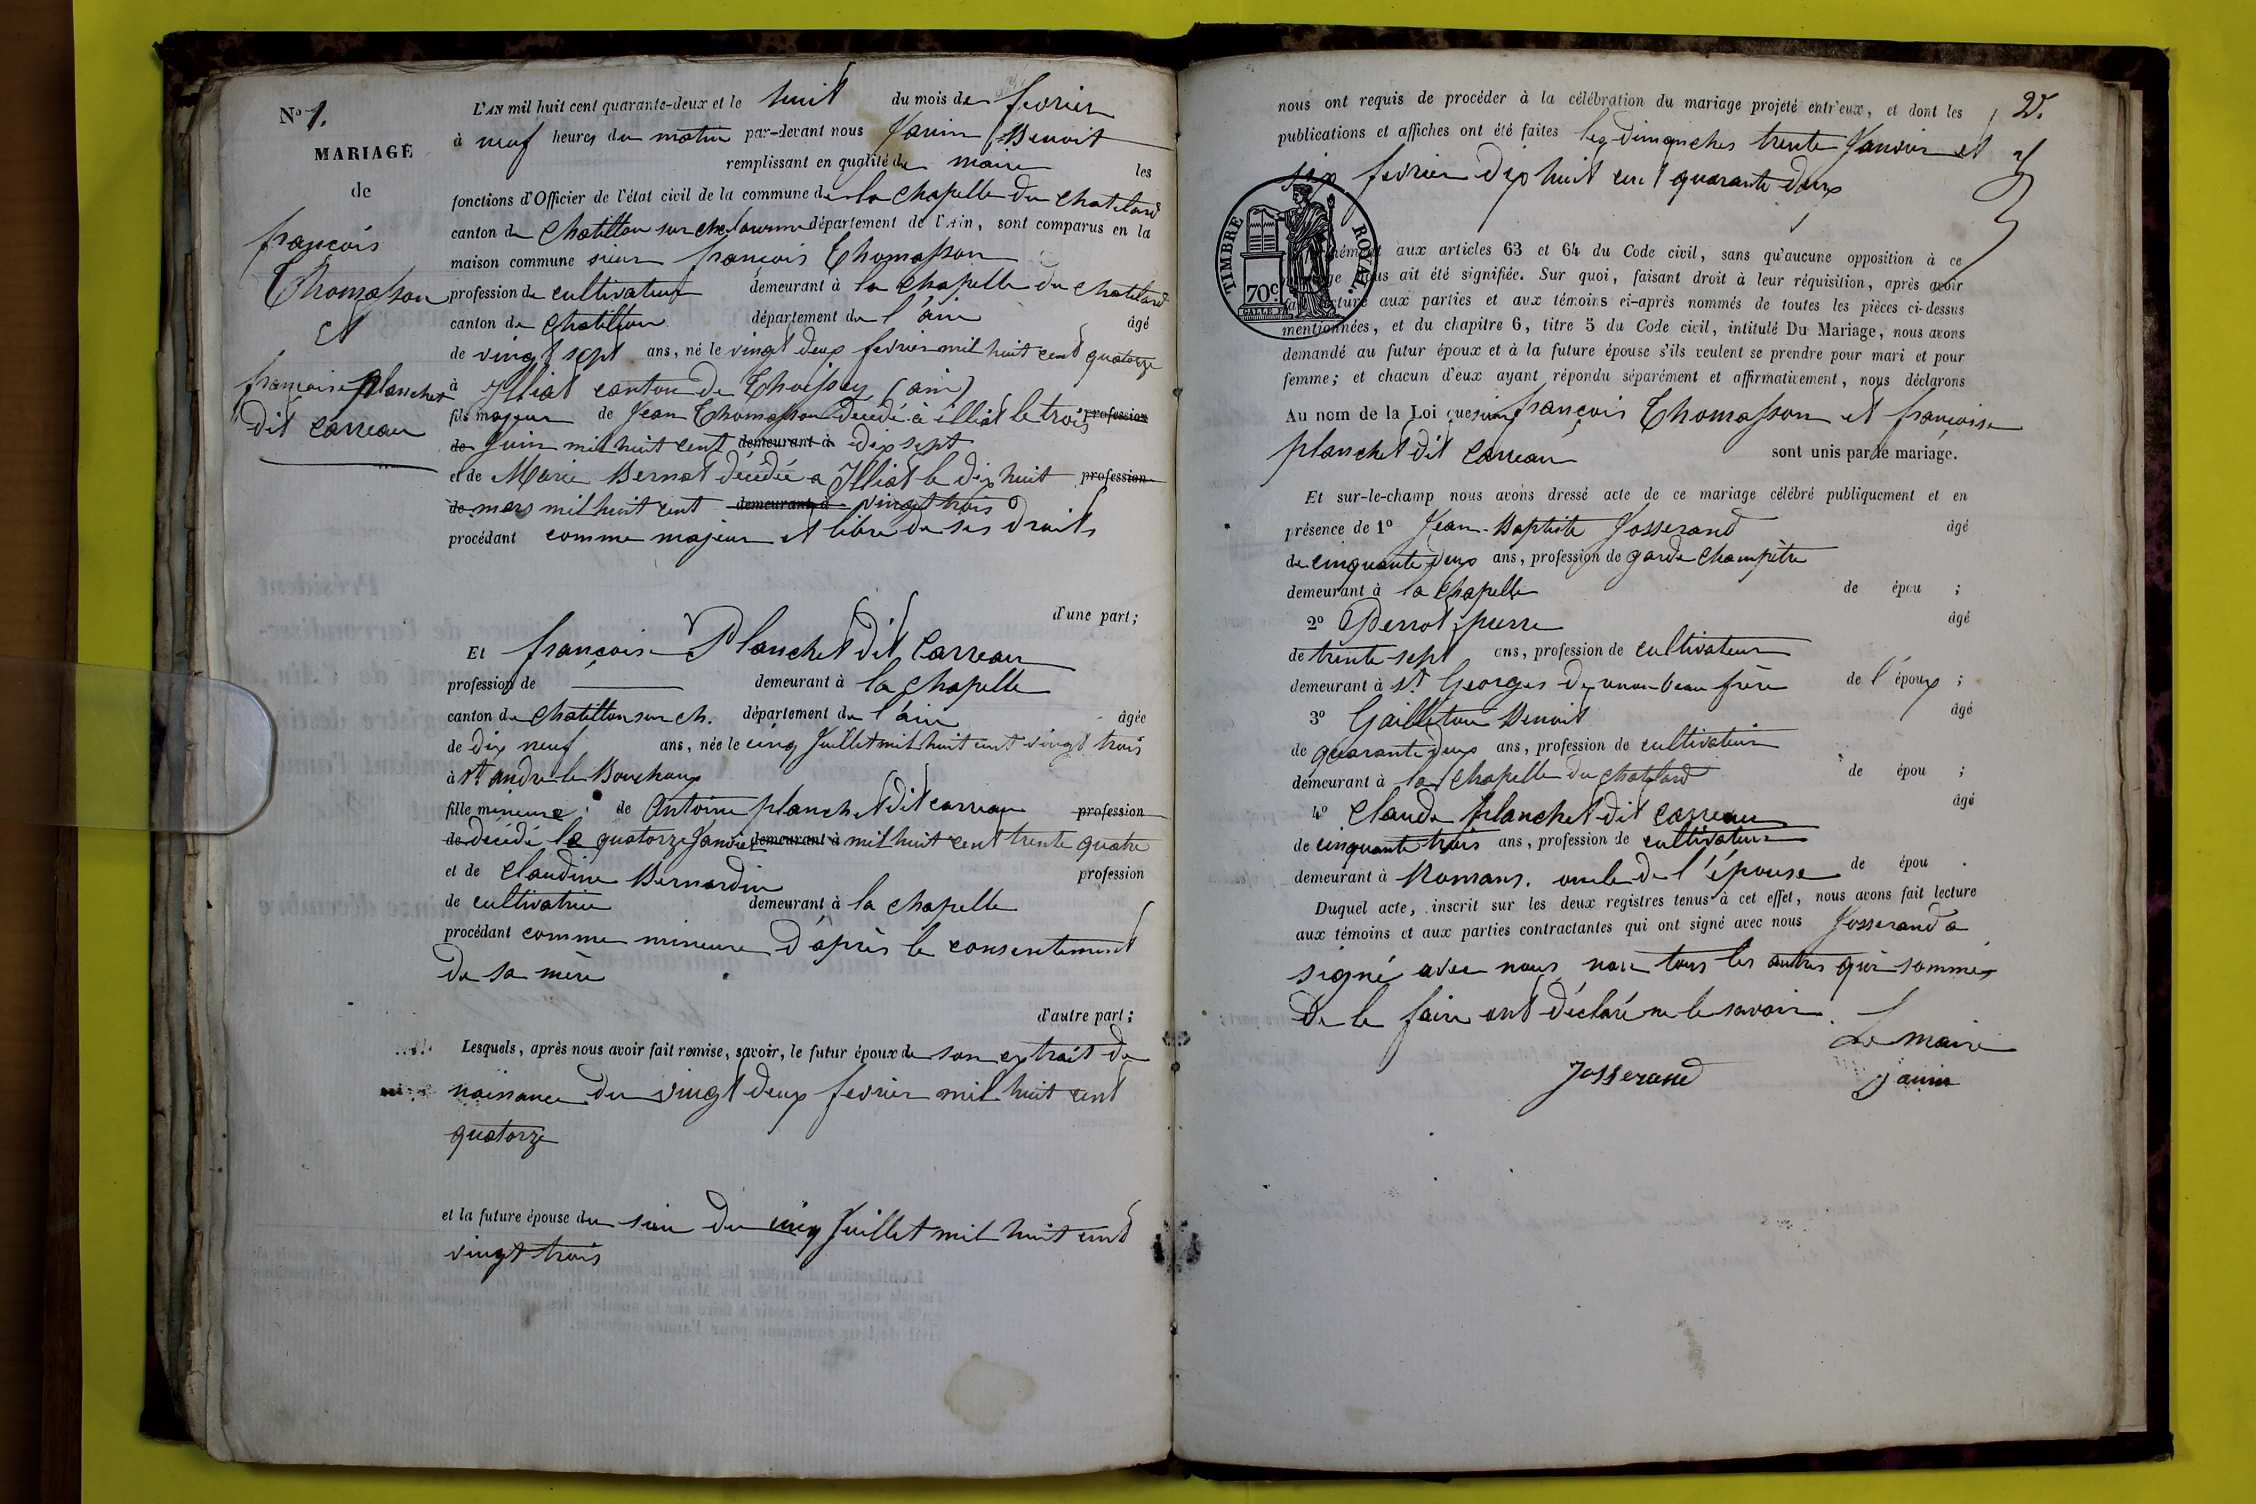 N° 1.
MARIAGE
de
françois
Thomasson
et
françoise planchet
dit Carreau
L'AN mil huit cent quarante-deux et le huit du mois de fevrier
à neuf heures du matin par-devant nous Janin Benoit
remplissant en qualité de maire les
fonctions d'Officier de l'état civil de la commune de la chapelle du chatelard
canton de Chatillon sur chalaronne département de l'Ain, sont comparus en la
maison commune sieur françois Thomasson
profession de cultivateur demeurant à la chapelle du chatelard
canton de Chatillon département de l'ain âgé
de vingt sept ans, né le vingt deux fevrier mil huit cent quatorze
à Illiat canton de Thoissey (ain)
fils majeur de Jean Thomasson decedé à illiat le trois profession
de Juin mil huit cent demeurant à dix sept
et de Marie Bernat décédée a Illiat le dix huit profession
de mars mil huit cent demeurant à vingt trois
procédant comme majeur et libre de ses droits
d'une part;
Et françoise Planchet dit Carreau
profession de demeurant à la chapelle
canton de Chatillon sur ch. département de l'ain âgée
de dix neuf ans, née le cinq Juillet mil huit cent vingt trois
à St andre le Bouchoux
fille mineure de Antoine planchet dit carreau profession
de décédé le quatorze Janvier demeurant à mil huit cent trente quatre
et de Claudine Bernardin profession
de cultivatrice demeurant à la chapelle
procédant comme mineure d'après le consentement
de sa mère
d'autre part;
Lesquels, après nous avoir fait remise, savoir, le futur époux de son extrait de
naissance du vingt deux fevrier mil huit cent
quatorze
et la future épouse du sien du cinq Juillet mil huit cent
vingt trois
25.
nous ont requis de procéder à la célébration du mariage projeté entr'eux, et dont les
publications et affiches ont été faites les dimanches trente Janvier et
six fevrier dix huit cent quarante deux
TIMBRE ROYAL.
70c
aux articles 63 et 64 du Code civil, sans qu'aucune opposition à ce
ait été signifiée. Sur quoi, faisant droit à leur réquisition, après avoir
aux parties et aux témoins ci-après nommés de toutes les pièces ci-dessus
mentionnées, et du chapitre 6, titre 5 du Code civil, intitulé Du Mariage, nous avons
demandé au futur époux et à la future épouse s'ils veulent se prendre pour mari et pour
femme; et chacun d'eux ayant répondu séparément et affirmativement, nous déclarons
Au nom de la Loi que françois Thomasson et françoise
planchet dit Carreau sont unis par le mariage.
Et sur-le-champ nous avons dressé acte de ce mariage célébré publiquement et en
présence de 1° Jean-Baptiste Josserand âgé
de cinquante deux ans, profession de garde champêtre
demeurant à la chapelle de épou ;
2° Perrot pierre âgé
de trente sept ans, profession de cultivateur
demeurant à St Georges beau frère de l'époux ;
3° Gailleton Benoit âgé
de quarante deux ans, profession de cultivateur
demeurant à la chapelle du chatelard de épou ;
4° Claude planchet dit Carreau âgé
de cinquante trois ans, profession de cultivateur
demeurant à Romans. oncle de l'épouse de épou .
Duquel acte, inscrit sur les deux registres tenus à cet effet, nous avons fait lecture
aux témoins et aux parties contractantes qui ont signé avec nous Josserand a
signé avec nous non tous les autres qui sommés
de le faire ont déclaré ne le savoir.
Le maire
Josserand Janin